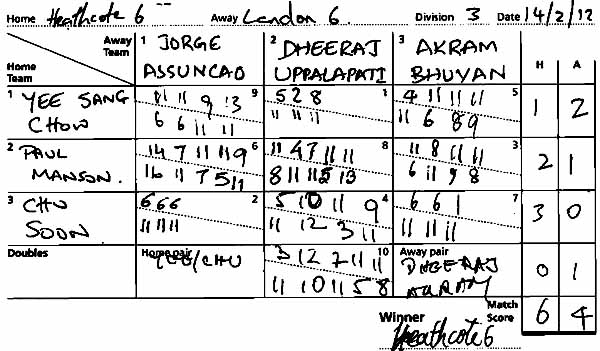 Home Heathcote 6 Away Landon 6 Division 3 Date 14/2/12
Away Team 1 JORGE ASSUNCAO 2 DHEERAJ UPPALAPATI 3 AKRAM BHUYAN H A
Home Team
1 YEE SANG CHOW 9 1 5 1 2
11 11 9 13 5 2 8 4 11 11 11
6 6 11 11 11 11 11 11 6 8 9
2 PAUL MANSON. 6 8 3 2 1
14 7 11 11 9 11 4 7 11 11 11 8 11 11
16 11 7 5 11 8 11 11 5 13 6 11 9 8
3 CHU SOON 2 4 7 3 0
6 6 6 5 10 11 9 6 6 1
11 11 11 11 12 3 11 11 11 11
Doubles Home pair YEE/CHU 10 Away pair DHEERAJ AKRAM 0 1
3 12 7 11 11
11 10 11 5 8
Winner Heathcote 6 Match Score 6 4